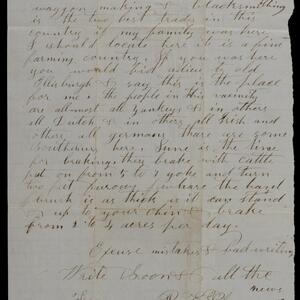 waggon making & blacksmithing
is the two best trades in this
country if my family was here
I should locate here it is a fine
farming country. If you was here
you would bid adieu to old
Ellisburgh & say this is the place
for me & the people in this vacinity
are allmost all Yankeys & in others
all Dutch & in others all Irish and
others all germans thare are some
Southerns here. June is the time
for braking they brake with cattle
put on from 5 to 7 yoke and turn
two feet furrows whare the hazel
brush is as thick as it can stand
& up to your chin & brake
from 2 to 4 acres per day.
Excuse mistakes & bad writing
Write Soon & all the
news